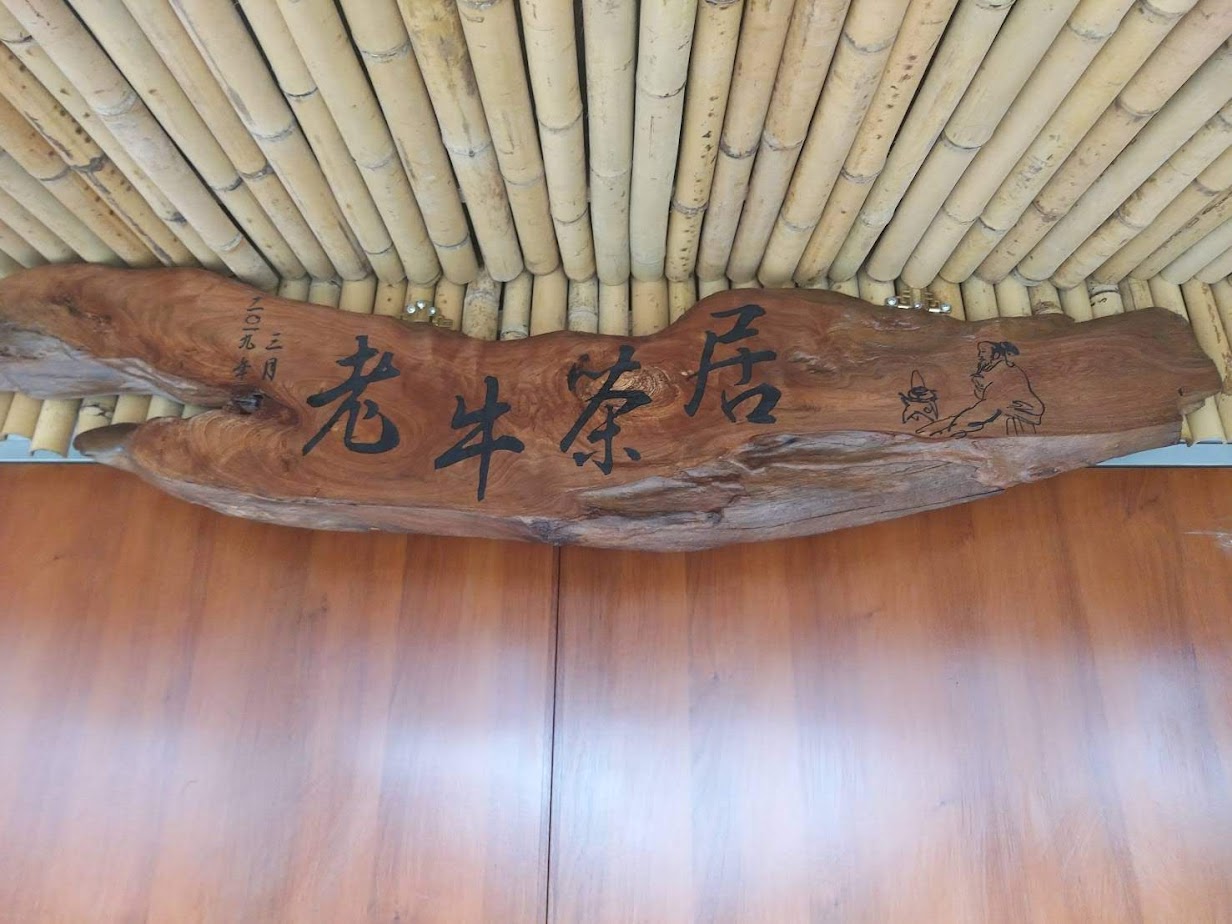 老牛茶居
二〇一九年
三月